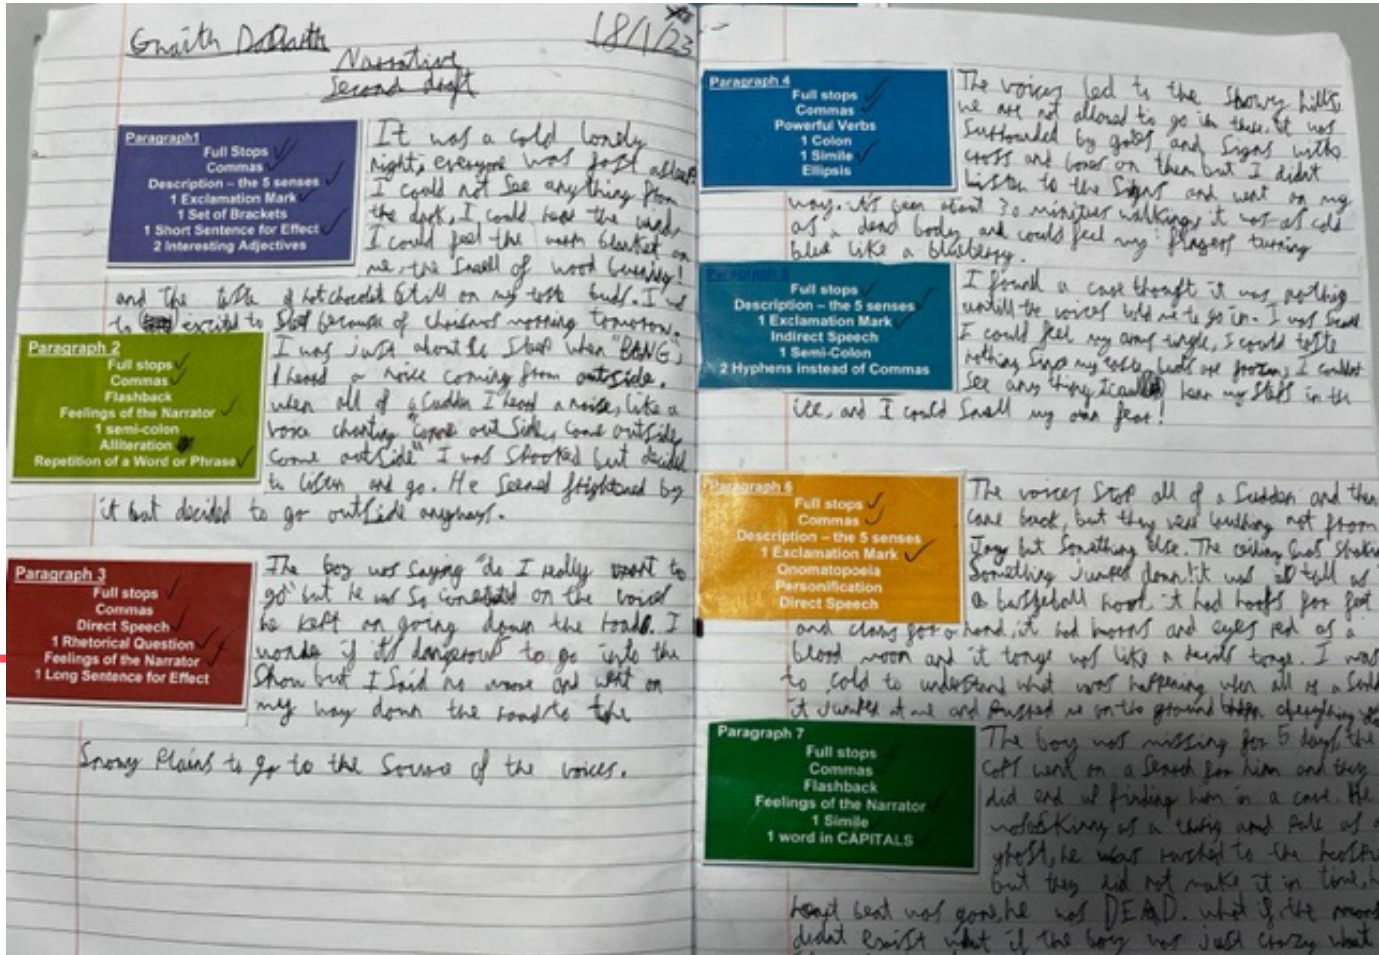 Gnaith
18/1/23
Narrative
Second draft
Paragraph1
Full Stops
Commas
Description – the 5 senses
1 Exclamation Mark
1 Set of Brackets
1 Short Sentence for Effect
2 Interesting Adjectives
It was a cold lonely
night, everyone was fast asleep
I could not see anything from
the dark, I could hear the wind,
I could feel the warm blanket on
me, the smell of wood burning!
and the taste of hot chocolate still on my taste buds. I was
to excited to because of christmas morning tomorrow.
Paragraph 2
Full stops
Commas
Flashback
Feelings of the Narrator
1 semi-colon
Alliteration
Repetition of a Word or Phrase
I was just about to sleep when "BANG",
I heard a noise coming from outside.
when all of a sudden I heard a noise, like a
voice chanting "come out side, come outside
come outside" I was shooked but decided
to listen and go. He seemed frightened by
it but decided to go outside anyways.
Paragraph 3
Full stops
Commas
Direct Speech
1 Rhetorical Question
Feelings of the Narrator
1 Long Sentence for Effect
The boy was saying "do I really want to
go" but he was so on the voices
he kept on going down the road. I
wonder if it's dangerous to go into the
but I said no more and went on
my way down the road to the
Snowy Plains to go to the source of the voices.
Paragraph 4
Full stops
Commas
Powerful Verbs
1 Colon
1 Simile
Ellipsis
The voices led to the snowy hills,
we are not allowed to go in there. it was
surrounded by gates and signs with
cross and bones on them but I didnt
listen to the signs and went on my
way. it's been about 30 walking, it was as cold
as a dead body and could feel my fingers turning
blue like a blueberry.
Paragraph 5
Full stops
Description – the 5 senses
1 Exclamation Mark
Indirect Speech
1 Semi-Colon
2 Hyphens instead of Commas
I found a cave thought it was nothing
untill the voices told me to go in. I was
I could feel my arms tingle, I could taste
nothing my taste buds are frozen, I couldnt
see any thing, I could hear my steps in the
ice, and I could smell my own fear!
Paragraph 6
Full stops
Commas
Description – the 5 senses
1 Exclamation Mark
Onomatopoeia
Personification
Direct Speech
The voices stop all of a sudden and then
came back, but they were not from
but something else. The ceiling was
Something jumped down! it was as tall as
a it had hoofs for feet
and claws for a hand, it had horns and eyes red as a
blood moon and it tonge was like a devils tonge. I was
to cold to understand what was happening when all of a
it jumped at me and pushed me on the ground then everything
Paragraph 7
Full stops
Commas
Flashback
Feelings of the Narrator
1 Simile
1 word in CAPITALS
The boy was missing for 5 days, the
cops went on a search for him and they
did end up finding him in a cave. He
was skinny as a twig and pale as a
ghost, he was rushed to the
but they did not make it in time,
beat was gone, he was DEAD. what if the
didnt exsist what if the boy was just crazy what